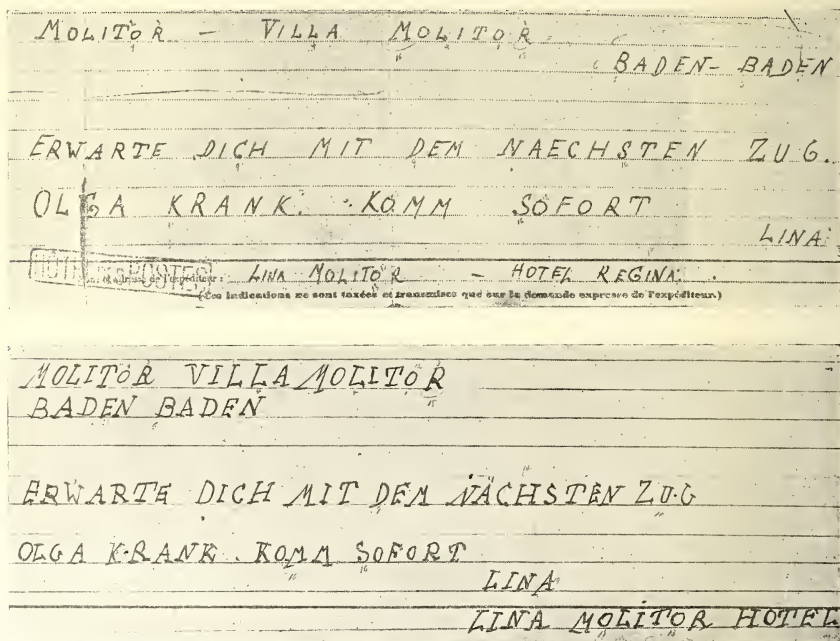 MOLITOR – VILLA MOLITOR
BADEN-BADEN
ERWARTE DICH MIT DEM NAECHSTEN ZUG.
OLGA KRANK. KOMM SOFORT
LINA
adresse de l'expéditeur: LINA MOLITOR – HOTEL REGINA.
(Ces indications ne sont taxées et transmises que sur la demande expresse de l'expéditeur.)
MOLITOR VILLA MOLITOR
BADEN BADEN
ERWARTE DICH MIT DEM NÄCHSTEN ZUG
OLGA KRANK. KOMM SOFORT
LINA
LINA MOLITOR HOTEL